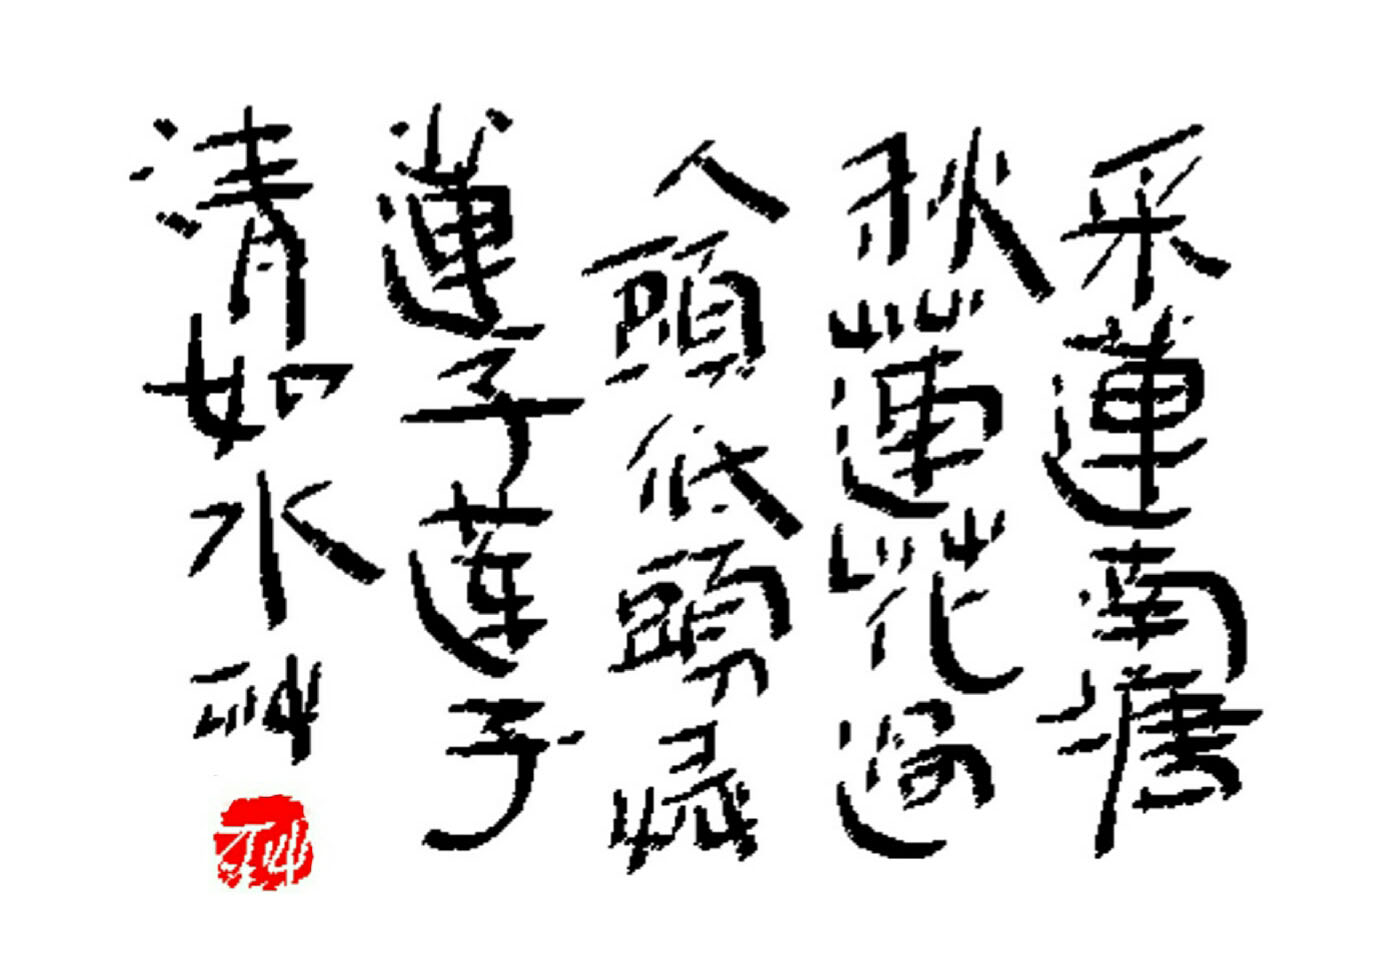 采蓮南塘
秋蓮花過
人頭低頭弄
蓮子蓮子
清如水